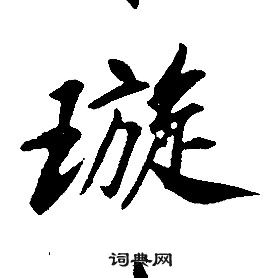 璇
词典网